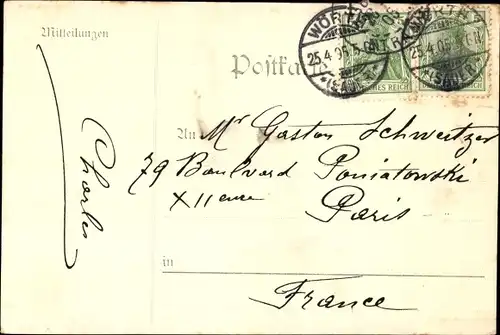 Mitteilungen
WÖRTH
25.4.05.5-6N
*(SAUER)*
DEUTSCHES REICH
WÖRTH
25.4.05.
*(SAUER)*
Postkarte
An Mr Gaston Schweitzer
79 Boulevard Poniatowski
XIIeme
Paris
in
France
Charles